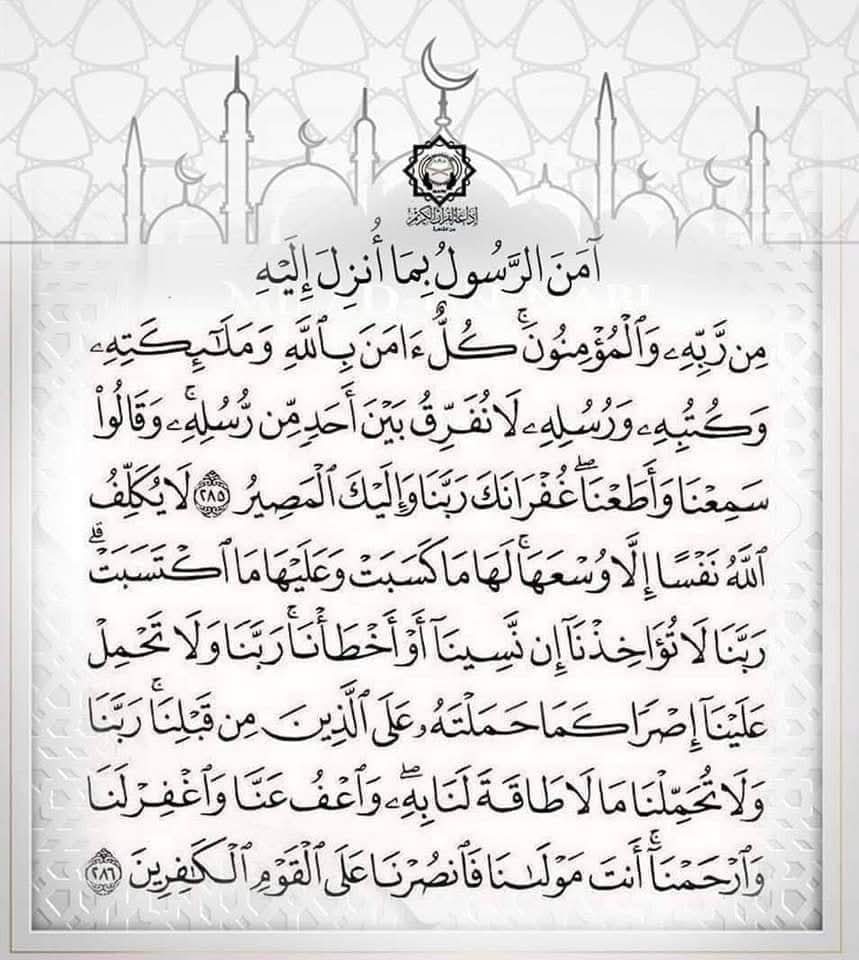 إذاعة القرآن الكريم
من القاهرة
آمَنَ الرَّسُولُ بِمَا أُنزِلَ إِلَيْهِ
مِن رَّبِّهِۦ وَٱلْمُؤْمِنُونَۚ كُلٌّ ءَامَنَ بِٱللَّهِ وَمَلَٰٓئِكَتِهِۦ
وَكُتُبِهِۦ وَرُسُلِهِۦ لَا نُفَرِّقُ بَيْنَ أَحَدٍ مِّن رُّسُلِهِۦۚ وَقَالُوا۟
سَمِعْنَا وَأَطَعْنَاۖ غُفْرَانَكَ رَبَّنَا وَإِلَيْكَ ٱلْمَصِيرُ ٢٨٥ لَا يُكَلِّفُ
ٱللَّهُ نَفْسًا إِلَّا وُسْعَهَاۚ لَهَا مَا كَسَبَتْ وَعَلَيْهَا مَا ٱكْتَسَبَتْۗ
رَبَّنَا لَا تُؤَاخِذْنَآ إِن نَّسِينَآ أَوْ أَخْطَأْنَاۚ رَبَّنَا وَلَا تَحْمِلْ
عَلَيْنَآ إِصْرًا كَمَا حَمَلْتَهُۥ عَلَى ٱلَّذِينَ مِن قَبْلِنَاۚ رَبَّنَا
وَلَا تُحَمِّلْنَا مَا لَا طَاقَةَ لَنَا بِهِۦۖ وَٱعْفُ عَنَّا وَٱغْفِرْ لَنَا
وَٱرْحَمْنَآۚ أَنتَ مَوْلَىٰنَا فَٱنصُرْنَا عَلَى ٱلْقَوْمِ ٱلْكَٰفِرِينَ ٢٨٦